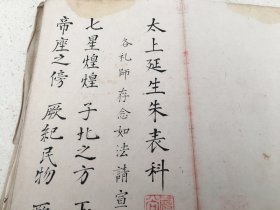 太上延生朱表科
各礼師 存念如法請宣
七星煌煌 子北之方
帝座之傍 厥紀民物